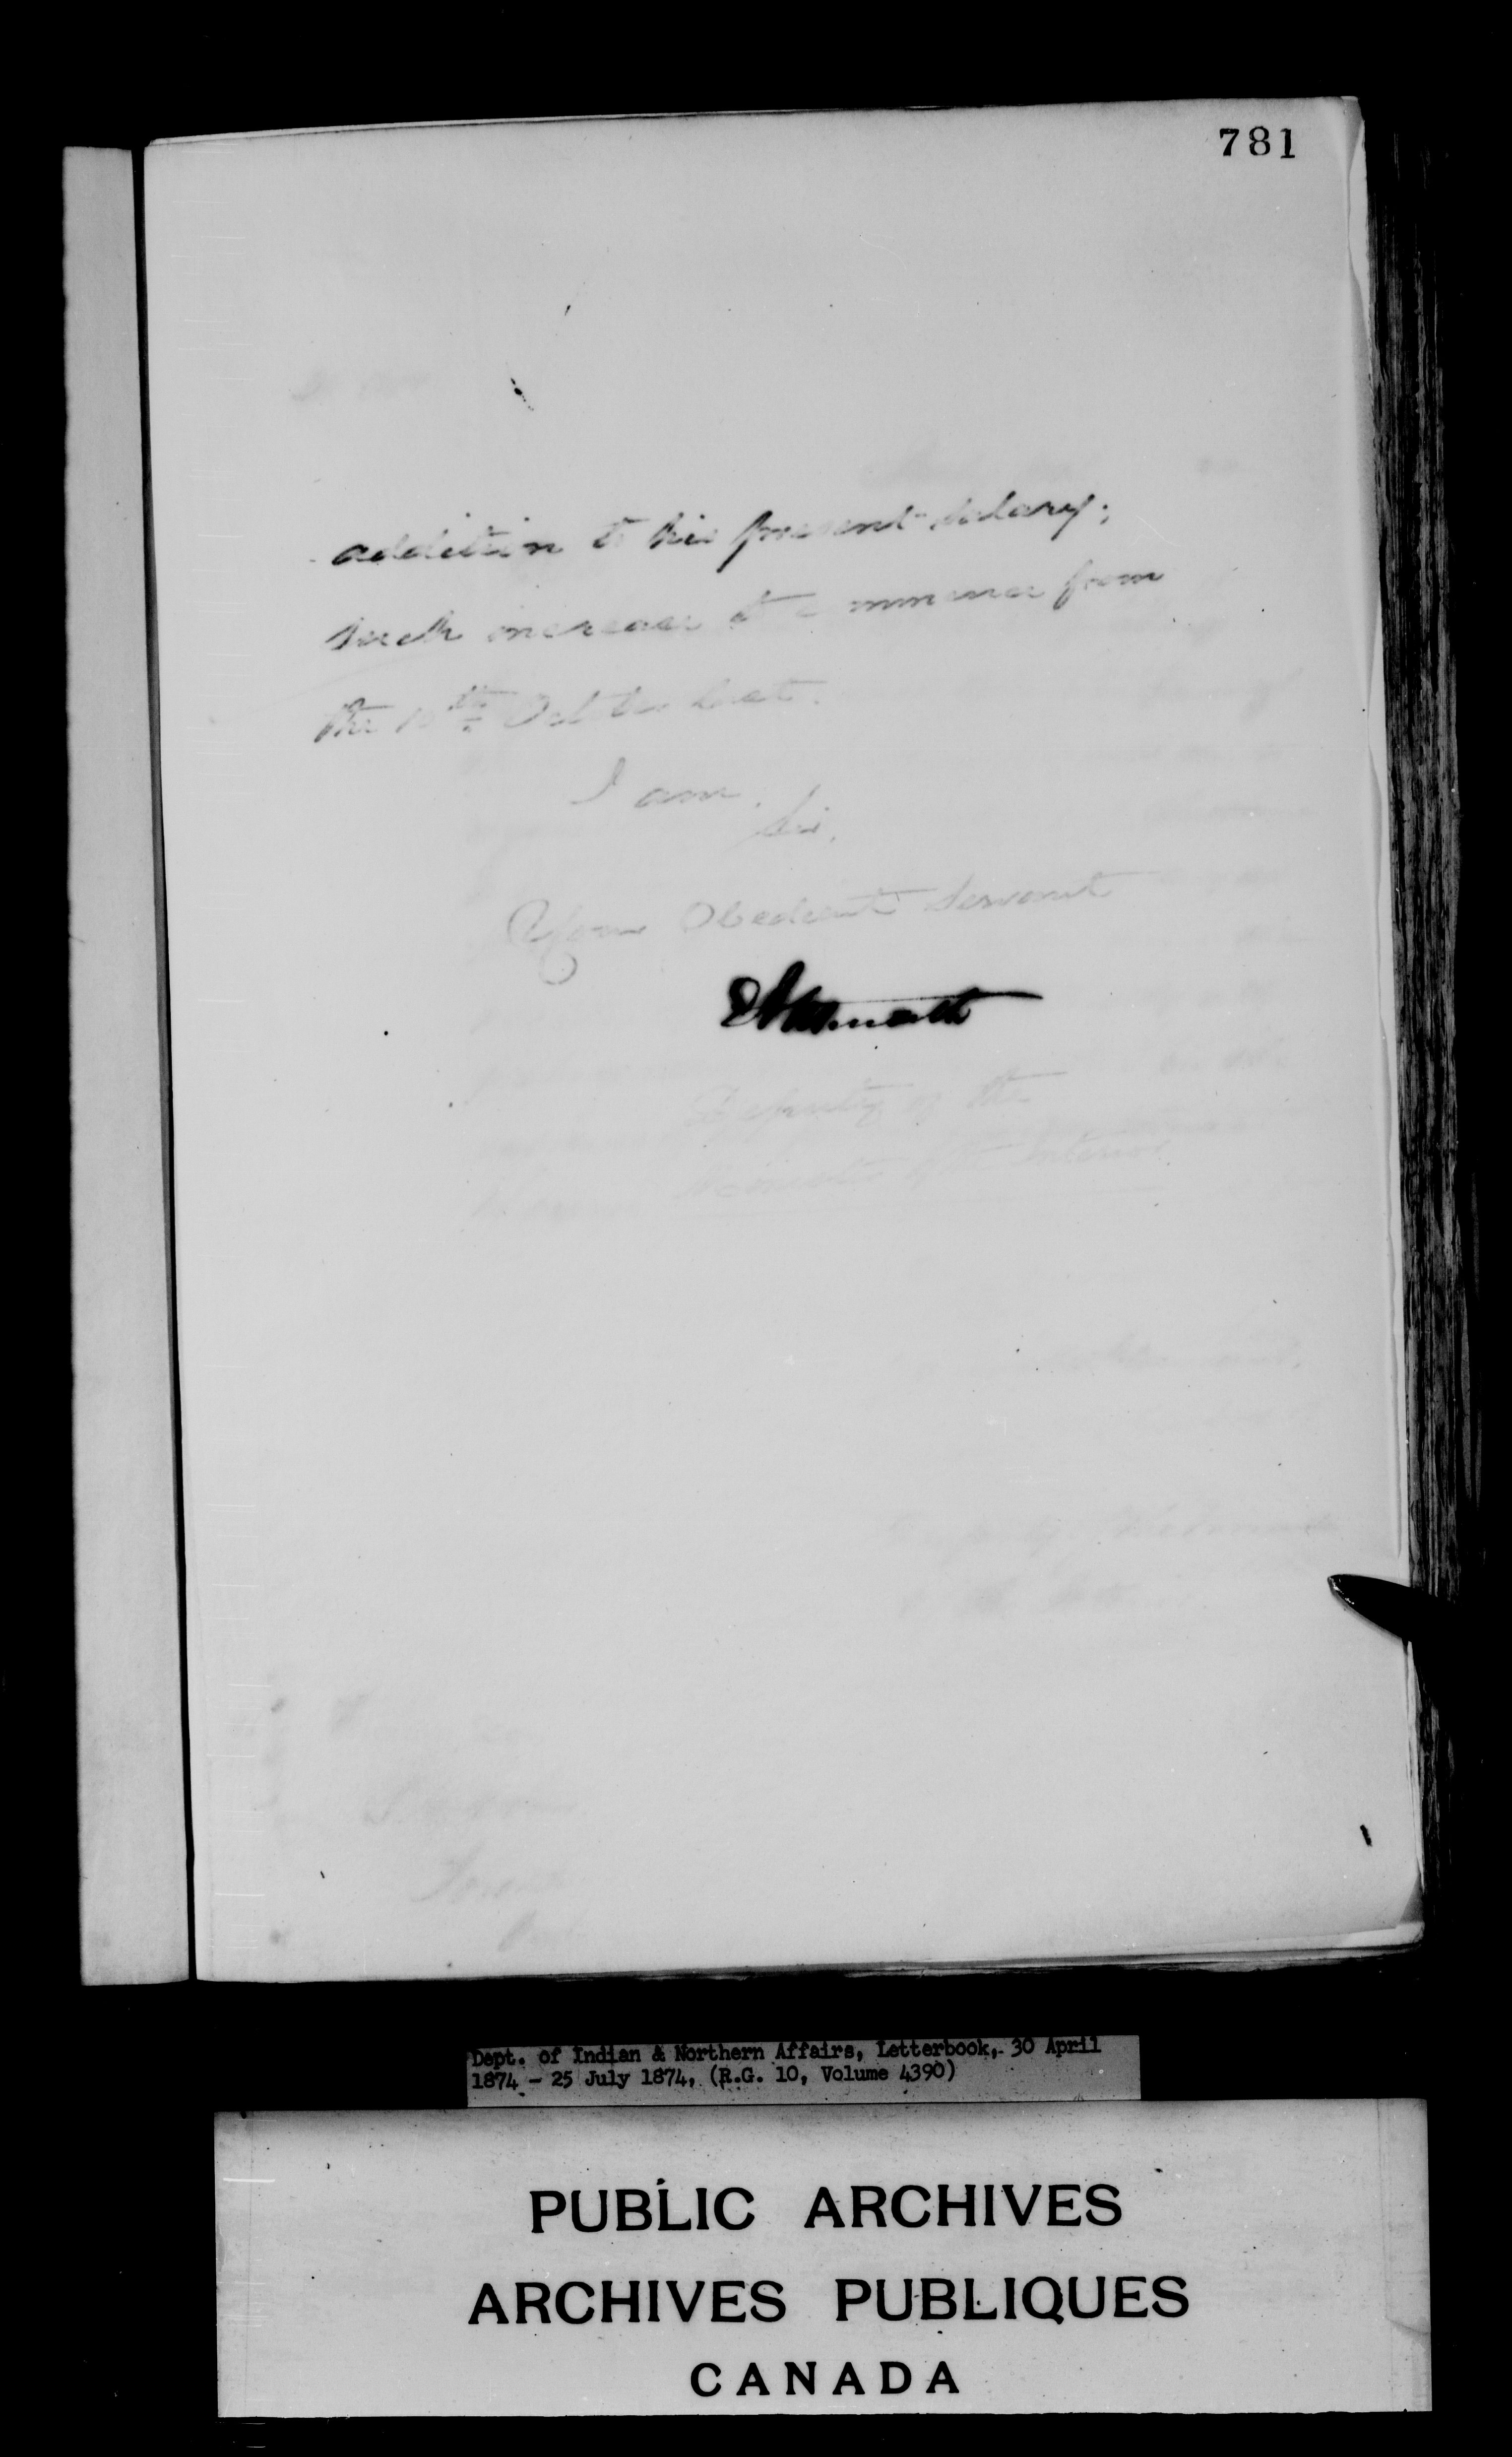 781
addition to his present salary;
such increase to commence from
the 10th October last.
I am,
Sir,
Your Obedient Servant
Deputy of the
Minister of the Interior
Dept. of Indian & Northern Affairs, Letterbook, 30 April
1874 - 25 July 1874, (R.G. 10, Volume 4390)
PUBLIC ARCHIVES
ARCHIVES PUBLIQUES
CANADA